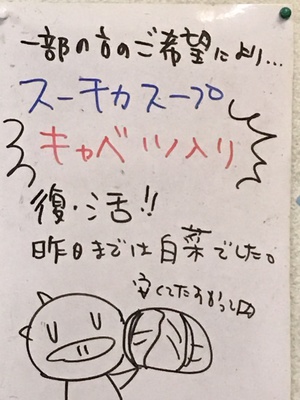 一部の方のご希望により…
スーチカスープ
キャベツ入り
復・活!!
昨日までは白菜でした。
安くてたすかってます